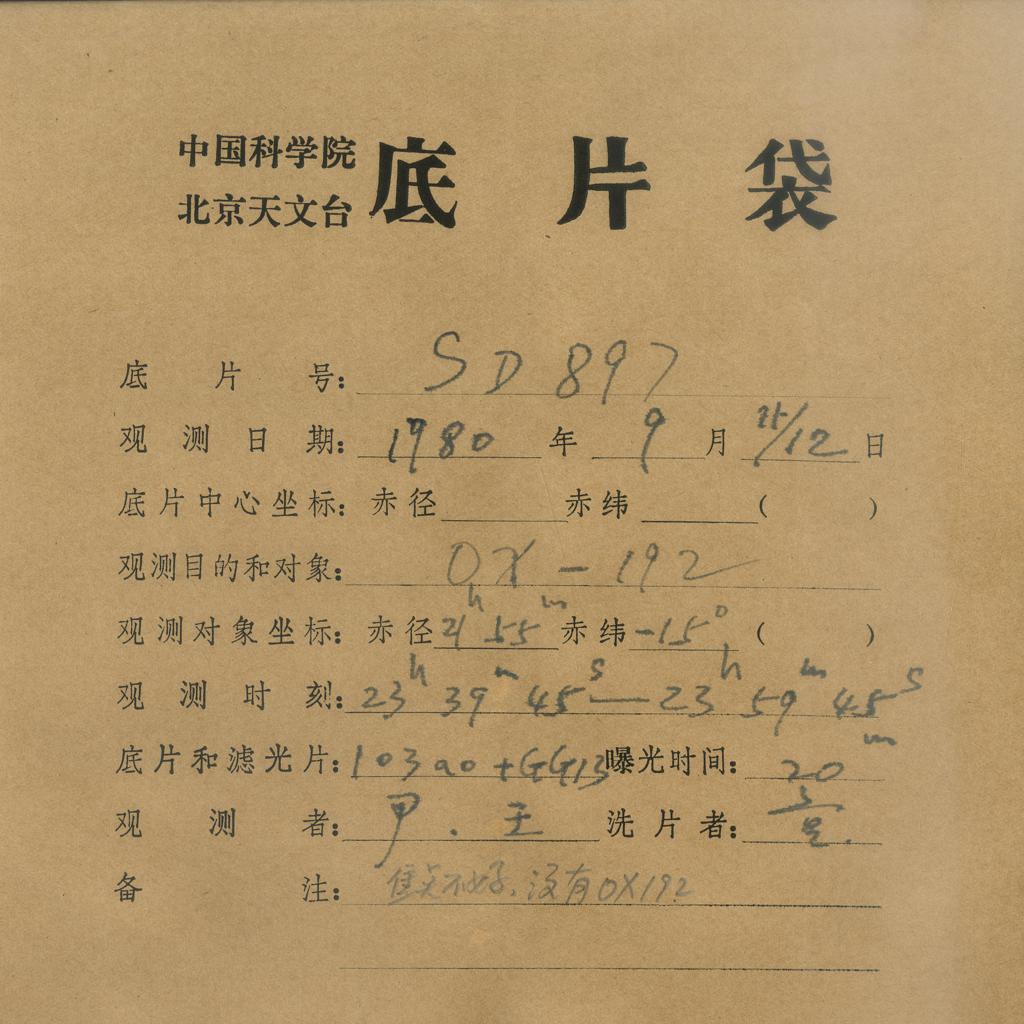 中国科学院
北京天文台
底片袋
底片号: SD897
观测日期: 1980年9月11/12日
底片中心坐标: 赤径 赤纬 ( )
观测目的和对象: OX-192
观测对象坐标: 赤径21h55m赤纬-15° ( )
观测时刻: 23h39m45s—23h59m45s
底片和滤光片: 103aO+GG13曝光时间: 20m
观测者: 王 洗片者:
备注: 焦点不好,没有OX192